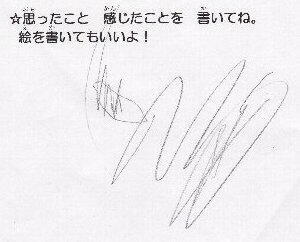 ☆思ったこと 感じたことを 書いてね。
絵を書いてもいいよ！